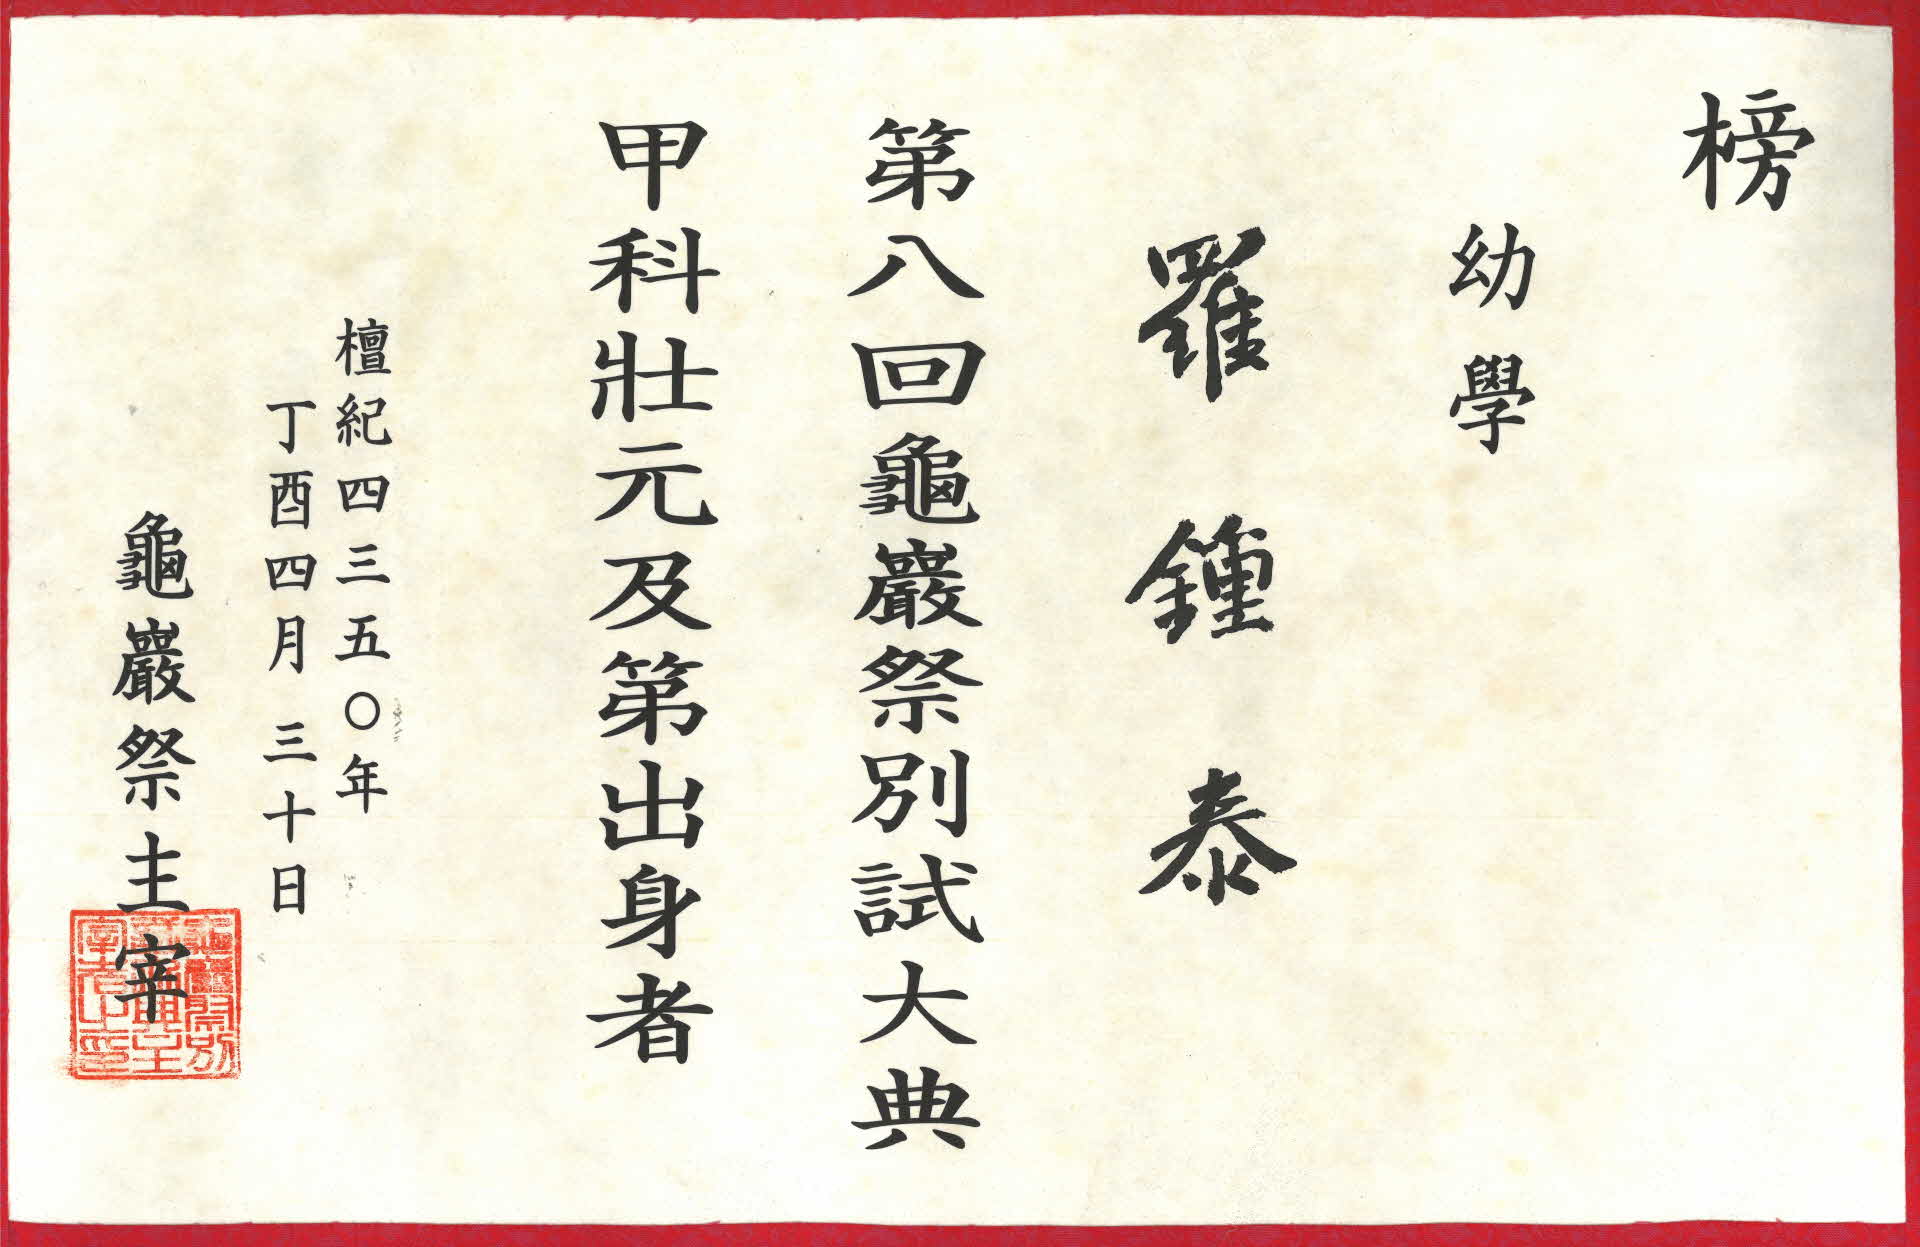 榜
幼學
羅鍾泰
第八回龜巖祭別試大典
甲科壯元及第出身者
檀紀四三五〇年
丁酉四月三十日
龜巖祭主宰